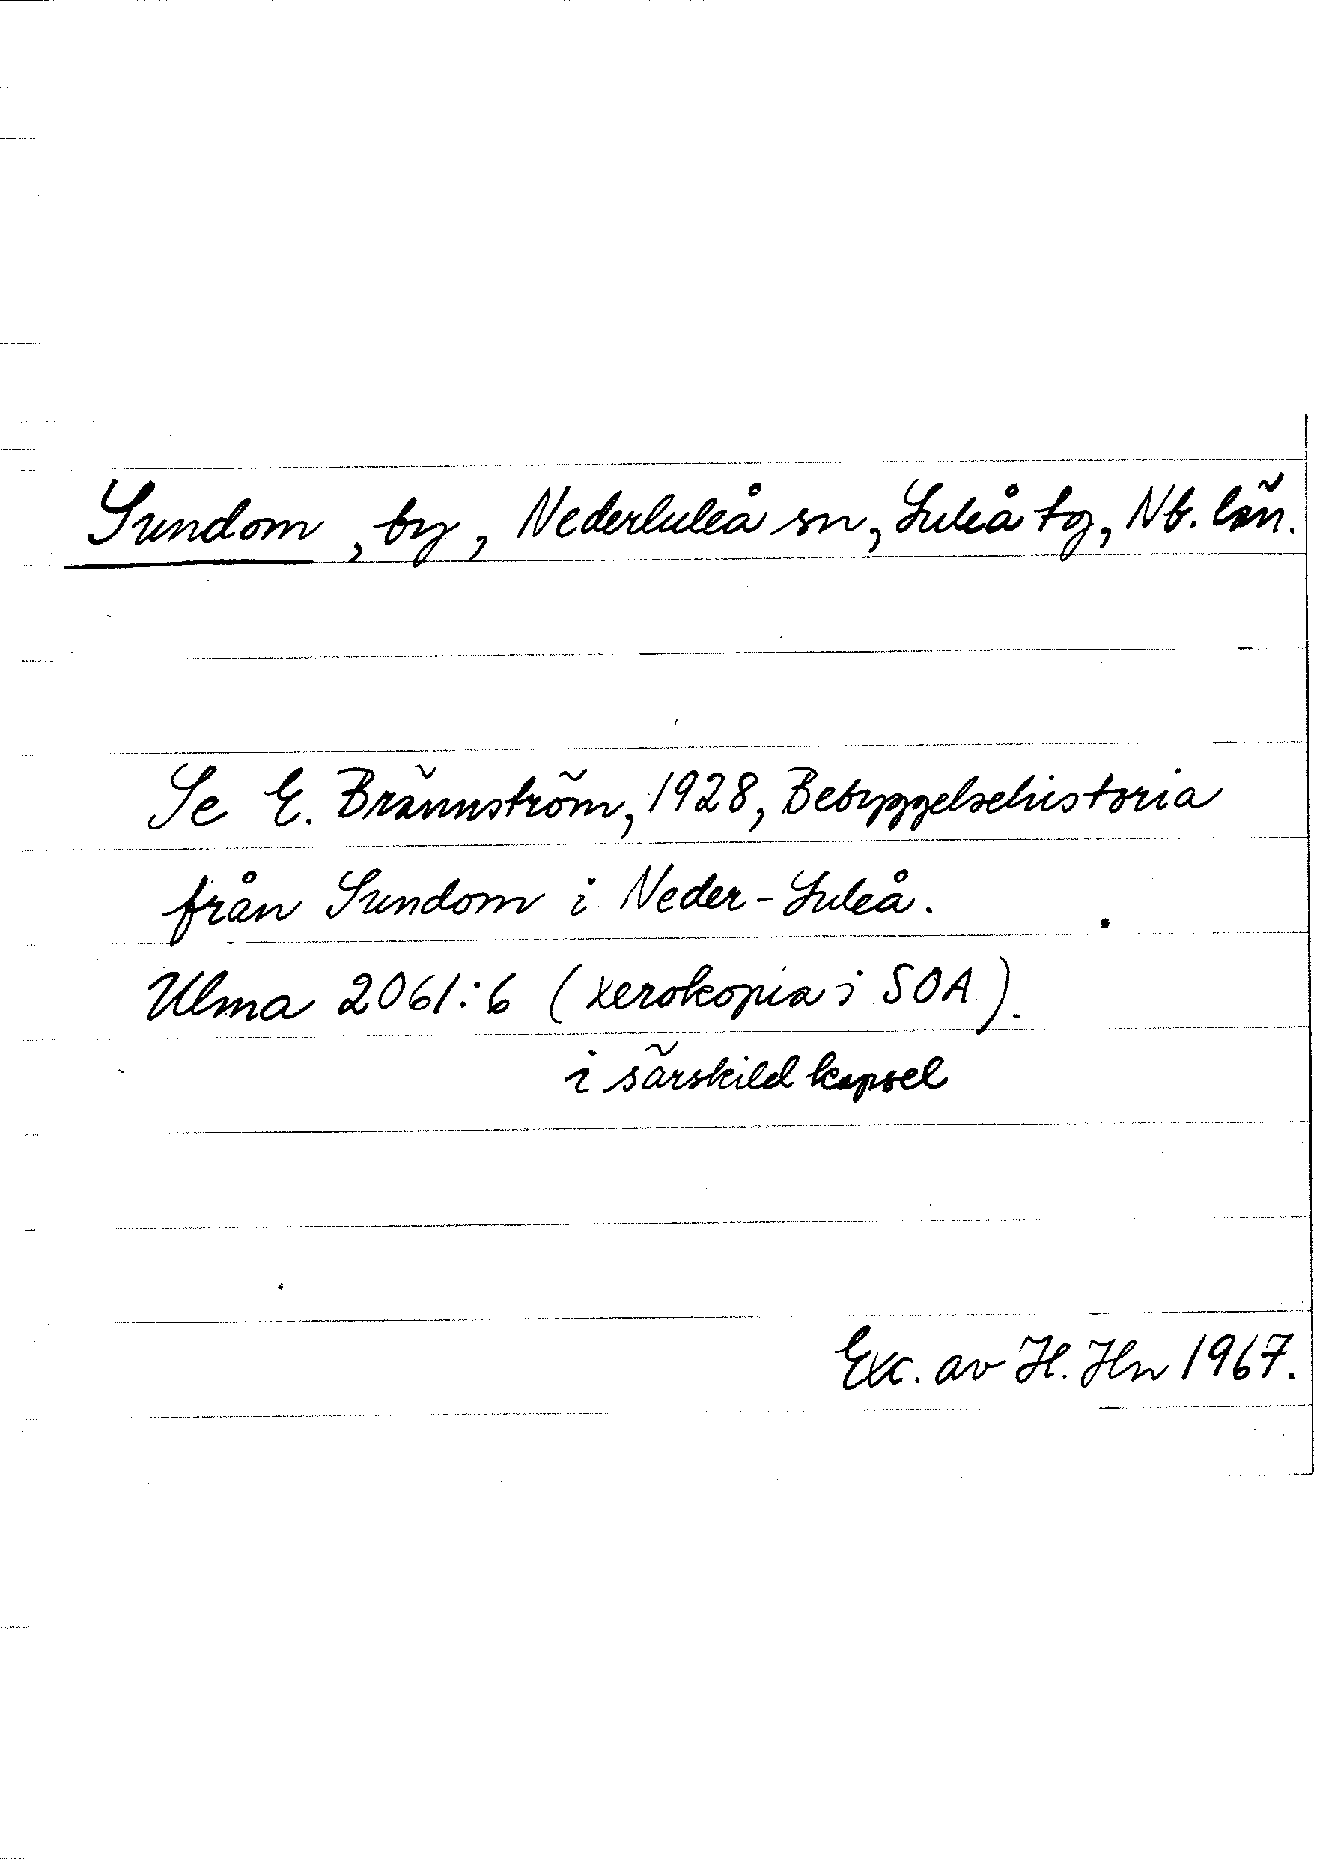 Sundom, by, Nederluleå sn, Luleå tg, Nb. län.
Se E. Brännström, 1928, Bebyggelsehistoria
från Sundom i Neder-Luleå.
Ulma 2061:6 (xerokopia i SOA).
i särskild kapsel
Exc. av H. Hn 1967.